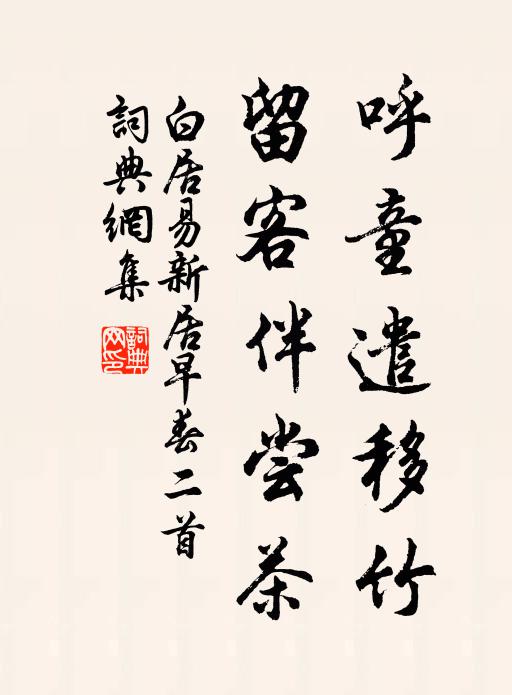 呼童遣移竹
留客伴尝茶
白居易新居早春二首
詞典網集
詞典網印